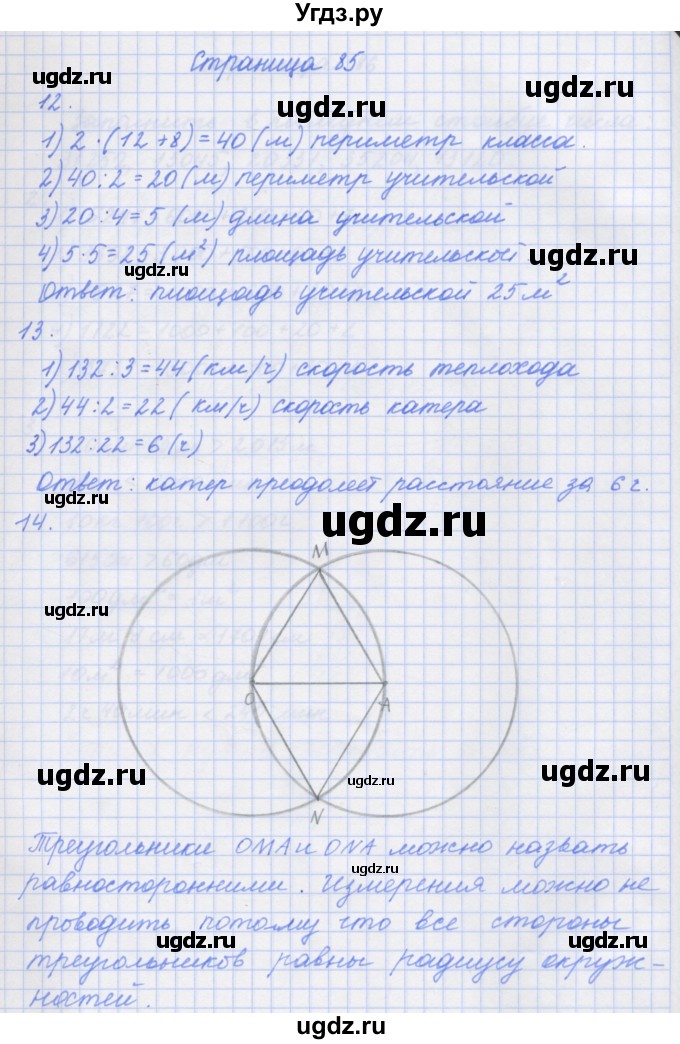 Угдз.ру
Страница 85
ugdz.ru ugdz.ru
12.
1) 2 · (12 + 8) = 40 (м) периметр класса.
ugdz.ru ugdz.ru
2) 40 : 2 = 20 (м) периметр учительской
3) 20 : 4 = 5 (м) длина учительской
4) 5 · 5 = 25 (м²) площадь учительской
ugdz.ru ugdz.ru
Ответ: площадь учительской 25 м²
13.
1) 132 : 3 = 44 (км/ч) скорость теплохода
2) 44 : 2 = 22 (км/ч) скорость катера
3) 132 : 22 = 6 (ч)
Ответ: катер преодолеет расстояние за 6 ч.
ugdz.ru ugdz.ru
14.
ugdz.ru
M
ugdz.ru
O A
ugdz.ru ugdz.ru ugdz.ru
N
Треугольники OMA и ONA можно назвать
ugdz.ru
равносторонними. Измерения можно не
проводить потому что все стороны
ugdz.ru ugdz.ru
треугольников равны радиусу окруж-
ностей.
ugdz.ru